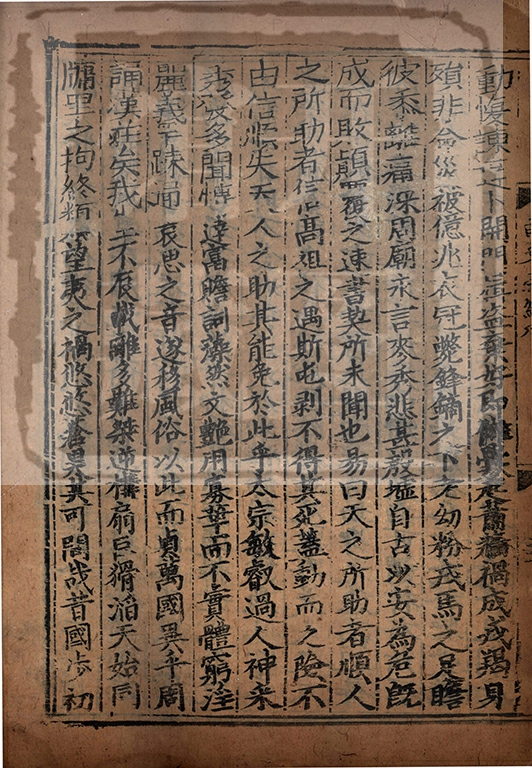 動慢諫之卜開門揖盜棄好即讎釁起蕭牆禍成戎羯身
殞非命災被億兆衣冠斃鋒鏑之下老幼粉戎馬之足瞻
彼黍離痛深周廟永言麥秀悲甚殷墟自古以安為危旣
成而敗顚覆之速書契所未聞也易曰天之所助者順人
之所助者信高祖之遇斯屯剥不得其死蓋動而之險不
由信順失天人之助其能免於此乎太宗敏叡過人神采
秀發多聞博達富贍詞藻然文艶用寡華而不實體窮淫
麗義罕疏通哀思之音遂移風俗以此而貞萬國異乎周
誦漢莊矣我生不辰載離多難桀逆構扇巨猾滔天始同
牖里之拘終類望夷之禍悠悠蒼昊其可問哉昔國步初